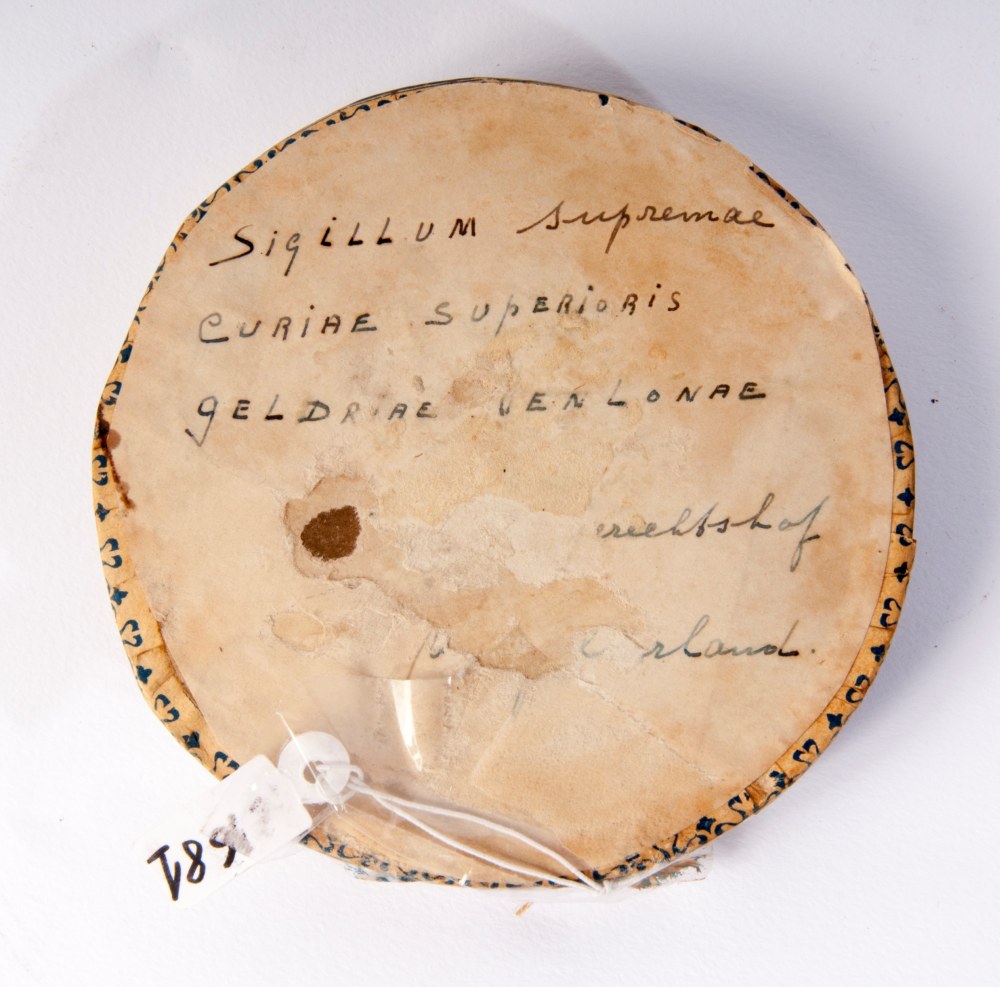 Sigillum supremae
Curiae superioris
Geldriae Venlonae
erechtshof
rland.
581